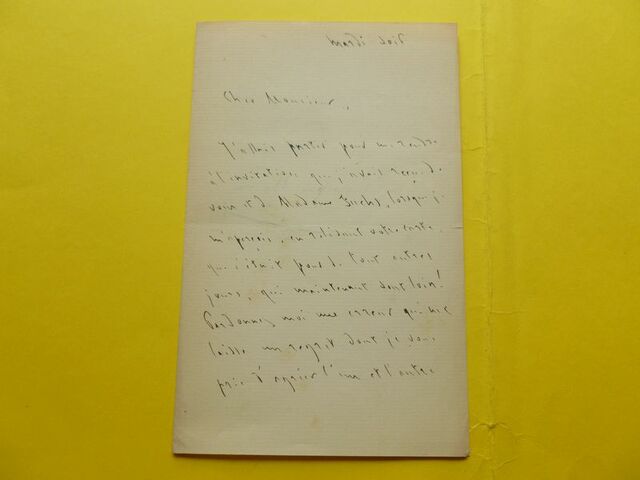 mardi soir
Cher Monsieur,
J'allais partir pour me rendre
à l'invitation que j'avais reçue de
vous et de Madame lorsque je
m'aperçois, en relisant votre carte
que c'était pour de tout autres
jours, qui maintenant sont loin!
Pardonnez moi une erreur qui me
laisse un regret dont je vous
prie d'agréer l'un et l'autre